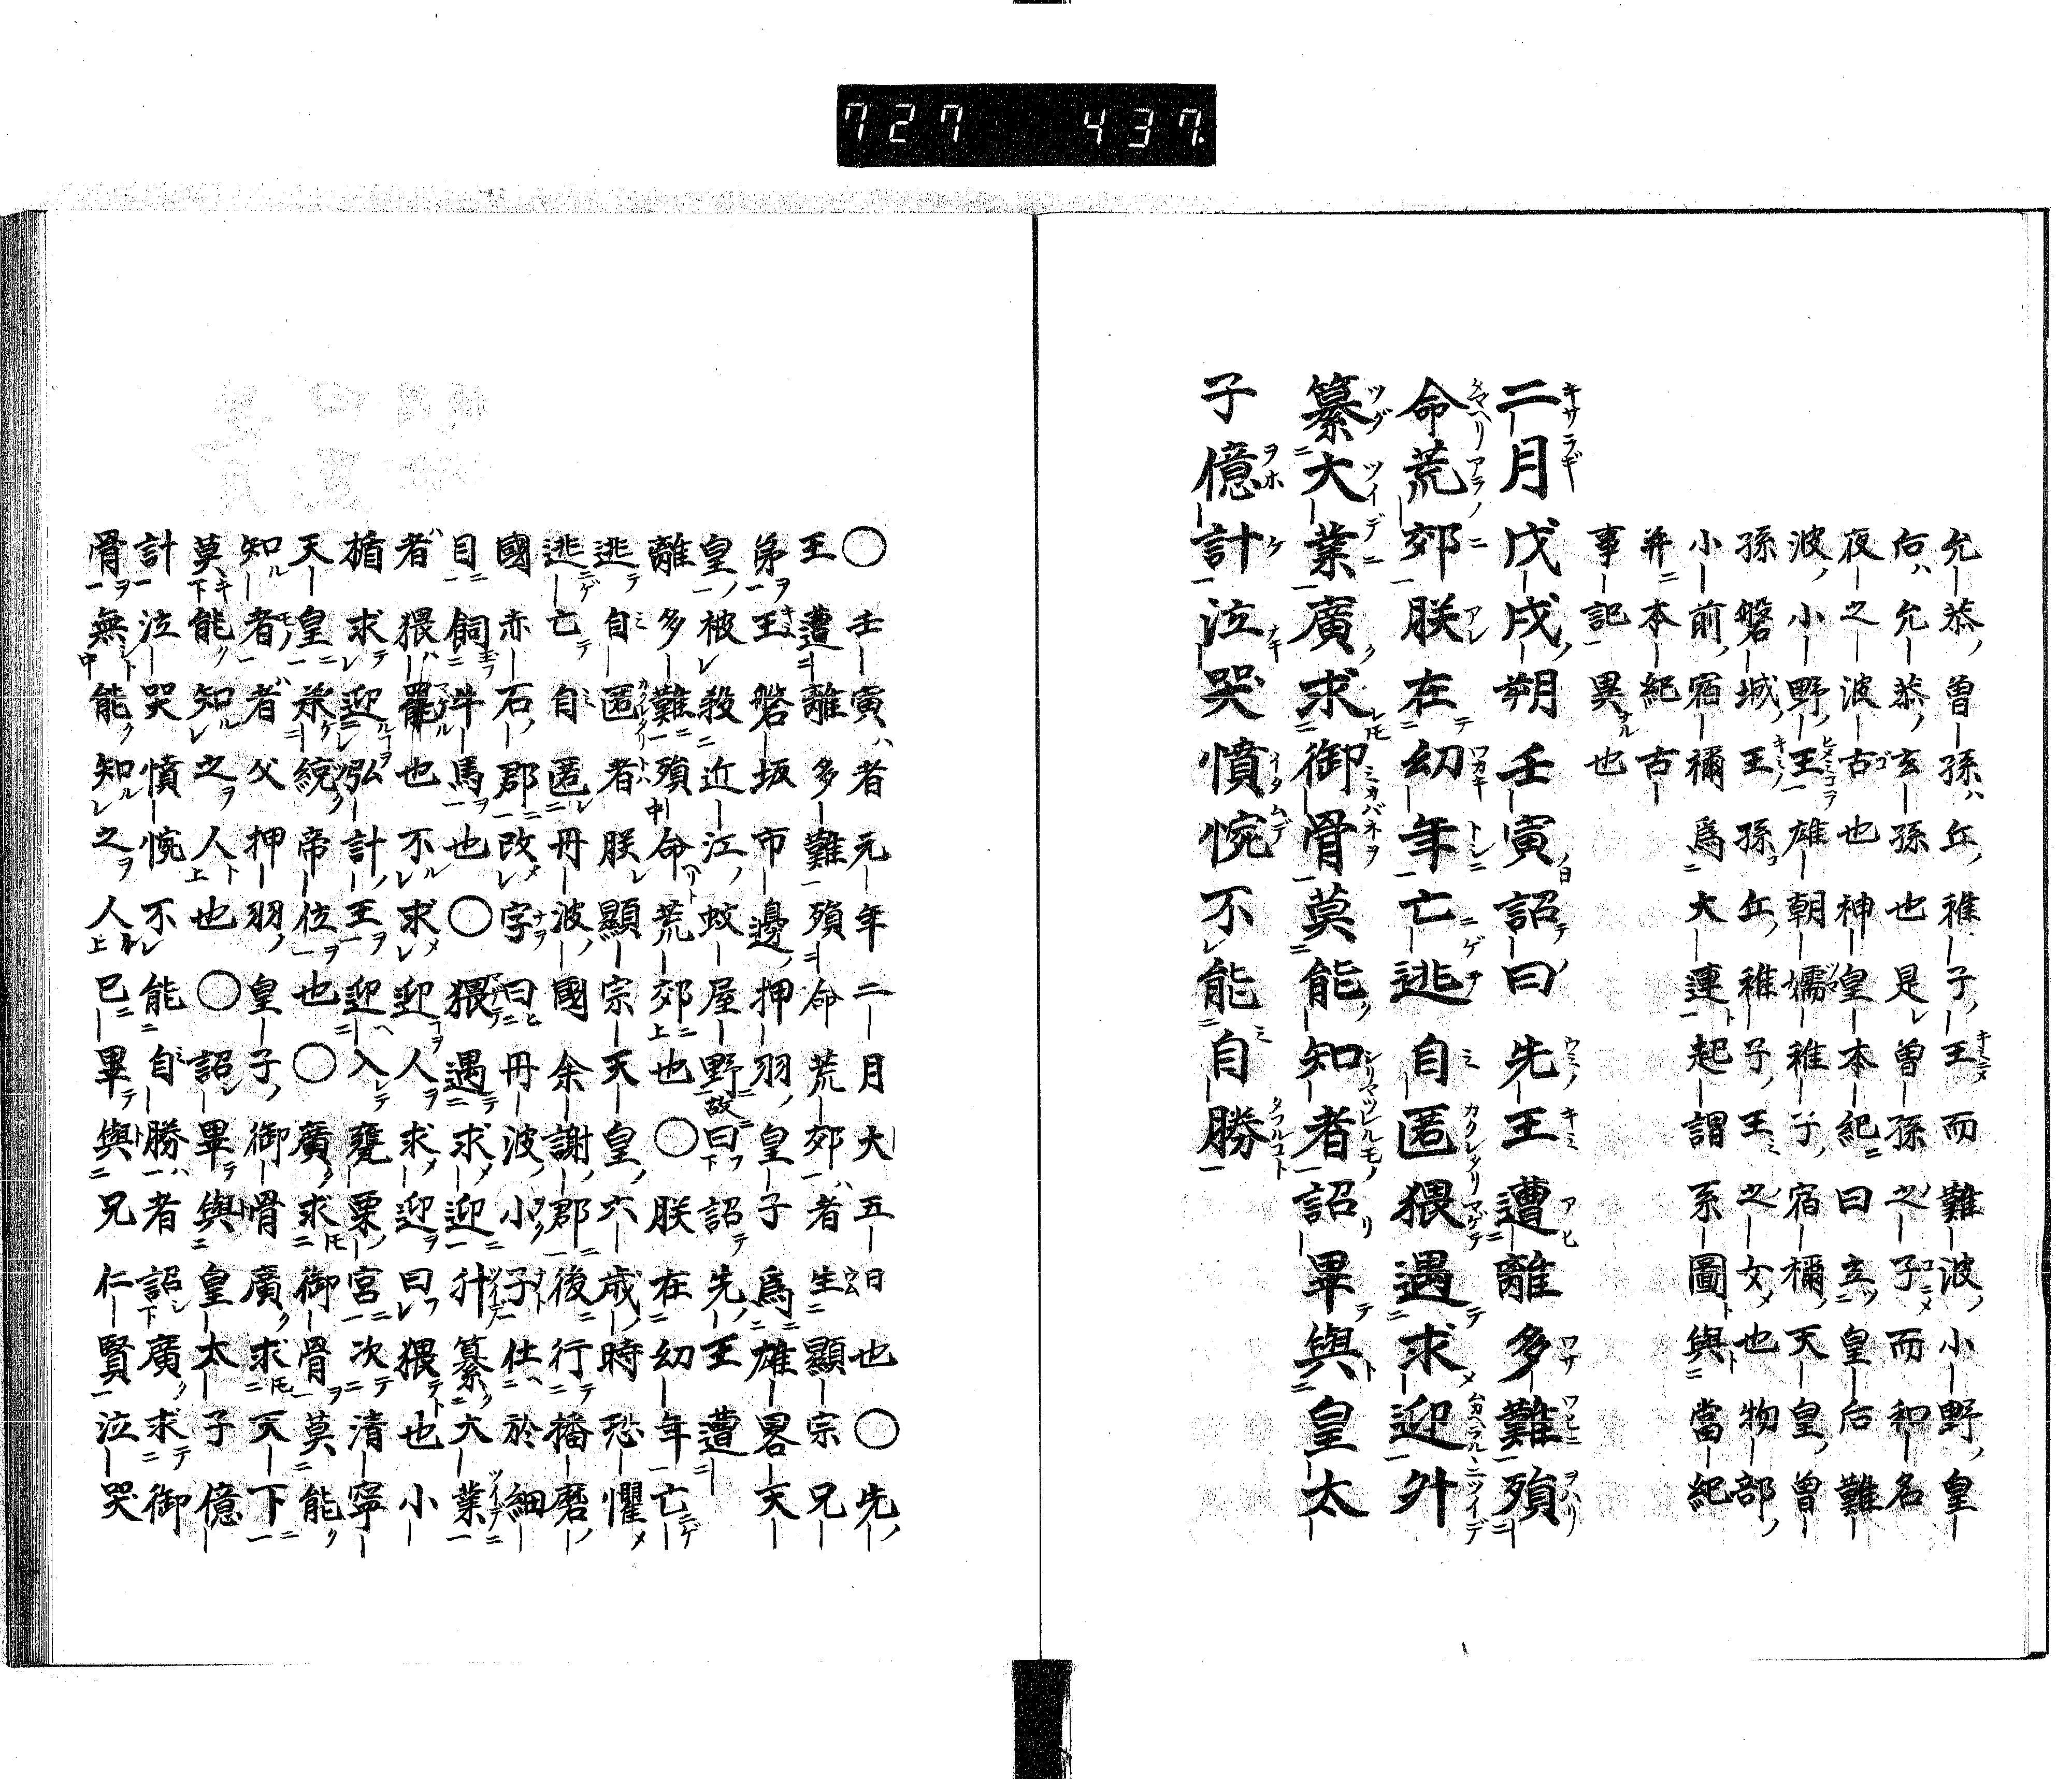 727 437.
允恭曽孫丘稚子王而難波小野皇
后允恭玄孫也是曽孫之子而和名
夜之波古也神皇本紀曰立皇后難
波小野王雄朝嬬稚子宿禰天皇曽
孫磐城王孫丘稚子王之女也物部
小前宿禰為大連起謂系圖與當紀
并本紀古
事記異也
二月戊戌朔壬寅詔曰先王遭離多難殞
命荒郊朕在幼年亡逃自匿猥遇求迎升
纂大業廣求御骨莫能知者詔畢與皇太
子億計泣哭憤惋不能自勝
○壬寅者元年二月大五日也○先
王遭離多難殞命荒郊者生顯宗兄
弟王磐坂市邊押羽皇子為雄畧天
皇被殺近江蚊屋野故曰詔先王遭
離多難殞命荒郊也○朕在幼年亡
逃自匿者朕顯宗天皇六歳時恐懼
逃亡自匿丹波國余謝郡後行播磨
國赤石郡改字曰丹波小子仕於細
目飼牛馬也○猥遇求迎升纂大業
者猥罷也不求迎人求迎曰猥也小
楯求迎泓計王迎入甕栗宮次清寧
天皇承統帝位也○廣求御骨莫能
知者者父押羽皇子御骨廣求天下
莫能知之人也○詔畢與皇太子億
計泣哭憤惋不能自勝者詔廣求御
骨無能知之人已畢與兄仁賢泣哭